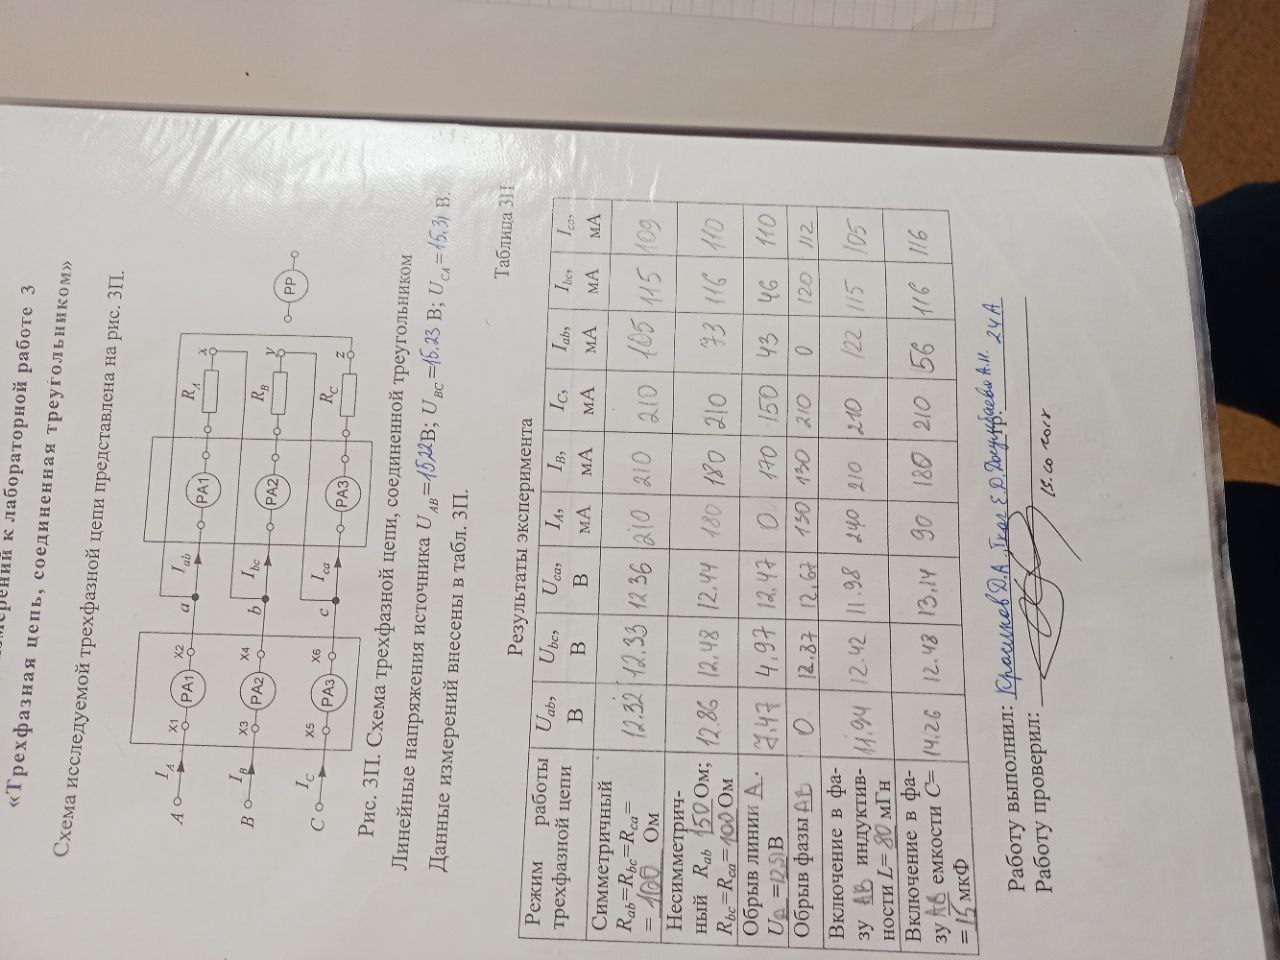 измерений к лабораторной работе 3
«Трехфазная цепь, соединенная треугольником»
Схема исследуемой трехфазной цепи представлена на рис. 3П.
A I_A X1 PA1 X2 a I_ab PA1 R_A x
B I_B X3 PA2 X4 b I_bc PA2 R_B y PP
C I_C X5 PA3 X6 c I_ca PA3 R_C z
Рис. 3П. Схема трехфазной цепи, соединенной треугольником
Линейные напряжения источника U_AB=15,22В; U_BC=15.23 В; U_CA=15.31 В.
Данные измерений внесены в табл. 3П.
Таблица 3П
Результаты эксперимента
Режим работы трехфазной цепи U_ab, В U_bc, В U_ca, В I_A, мА I_B, мА I_C, мА I_ab, мА I_bc, мА I_ca, мА
Симметричный
R_ab=R_bc=R_ca=
=100 Ом 12.32 12.33 12.36 210 210 210 105 115 109
Несимметрич-
ный R_ab 150 Ом;
R_bc=R_ca=100 Ом 12.86 12.48 12.44 180 180 210 73 116 110
Обрыв линии A.
U_A=12,51 В 7.47 4.97 12.47 0 170 150 43 46 110
Обрыв фазы AB 0 12.87 12,67 130 130 210 0 120 112
Включение в фа-
зу AB индуктив-
ности L= 80 мГн 11.94 12.42 11.98 240 210 210 122 115 105
Включение в фа-
зу AB емкости C=
=15 мкФ 14.26 12.48 13,14 90 180 210 56 116 116
Работу выполнил: Красиков Д.А., Ткач Е.Д, А.Н. гр. 24А
Работу проверил: